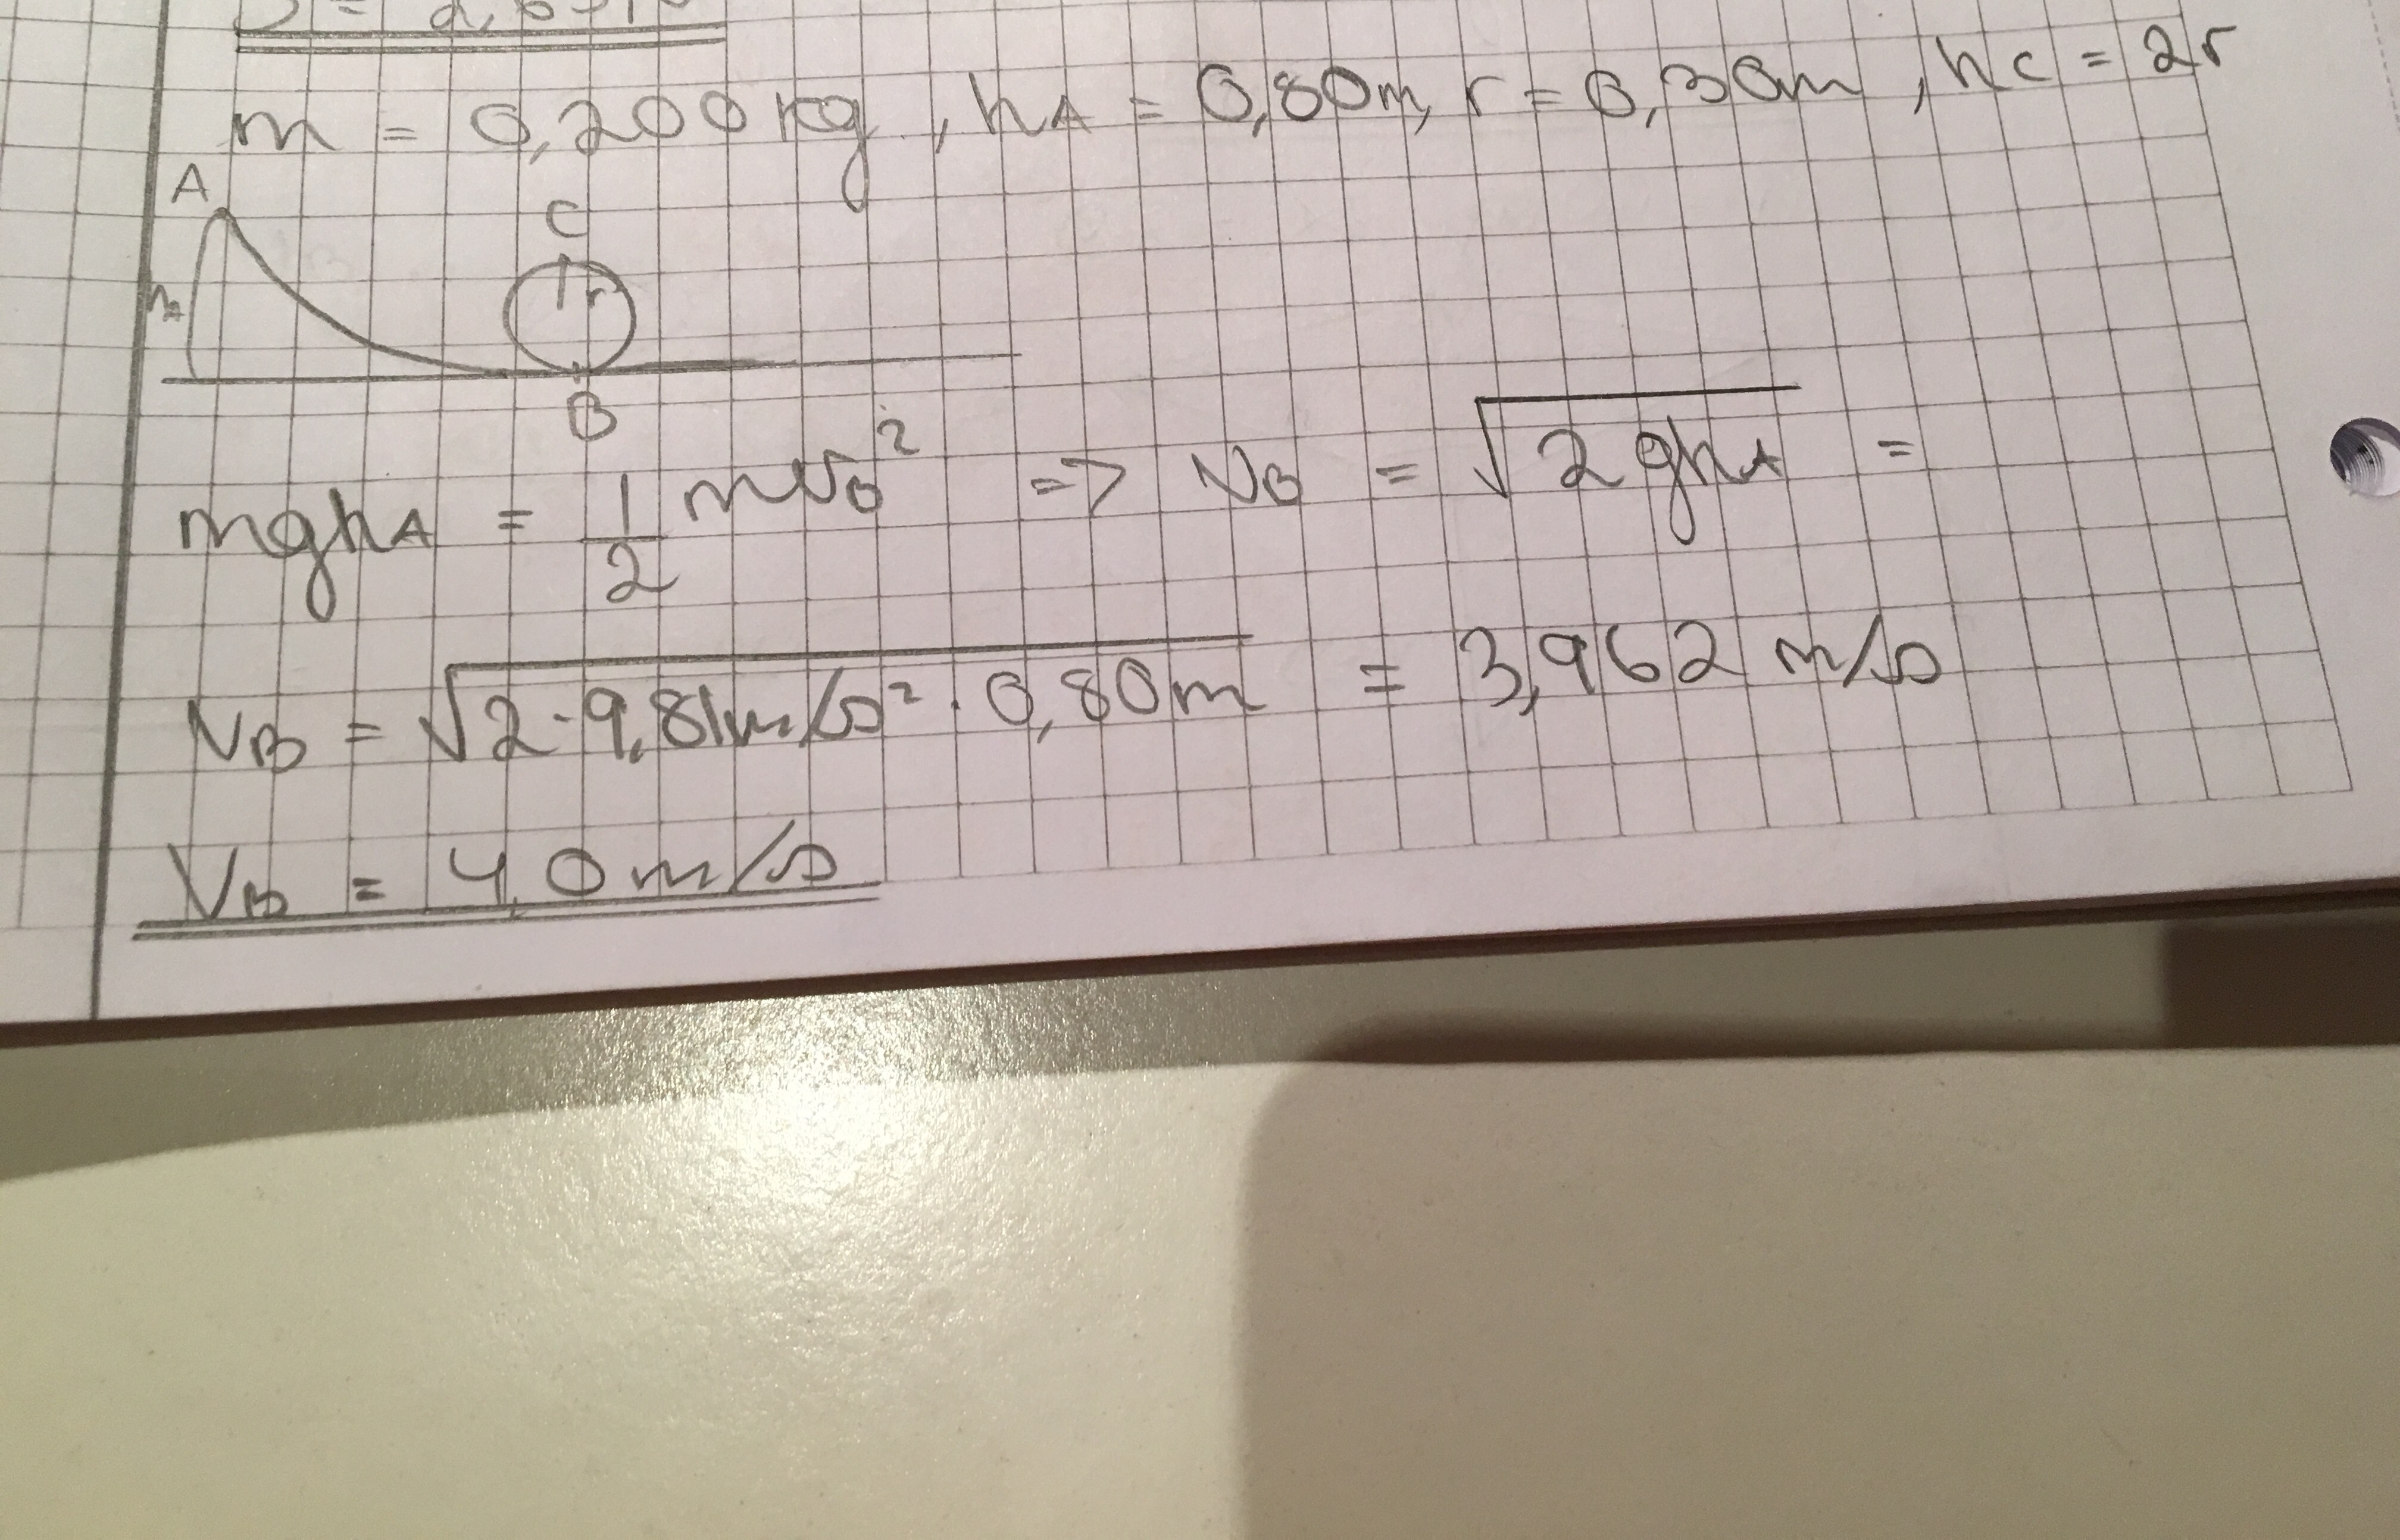 m = 0,200 kg, hA = 0,80m, r = 0,30m, hC = 2r
A
C
r
hA
B
mghA = 1/2 mvB² => vB = √(2ghA) =
vB = √(2·9,81m/s²·0,80m) = 3,962 m/s
VB = 4,0 m/s